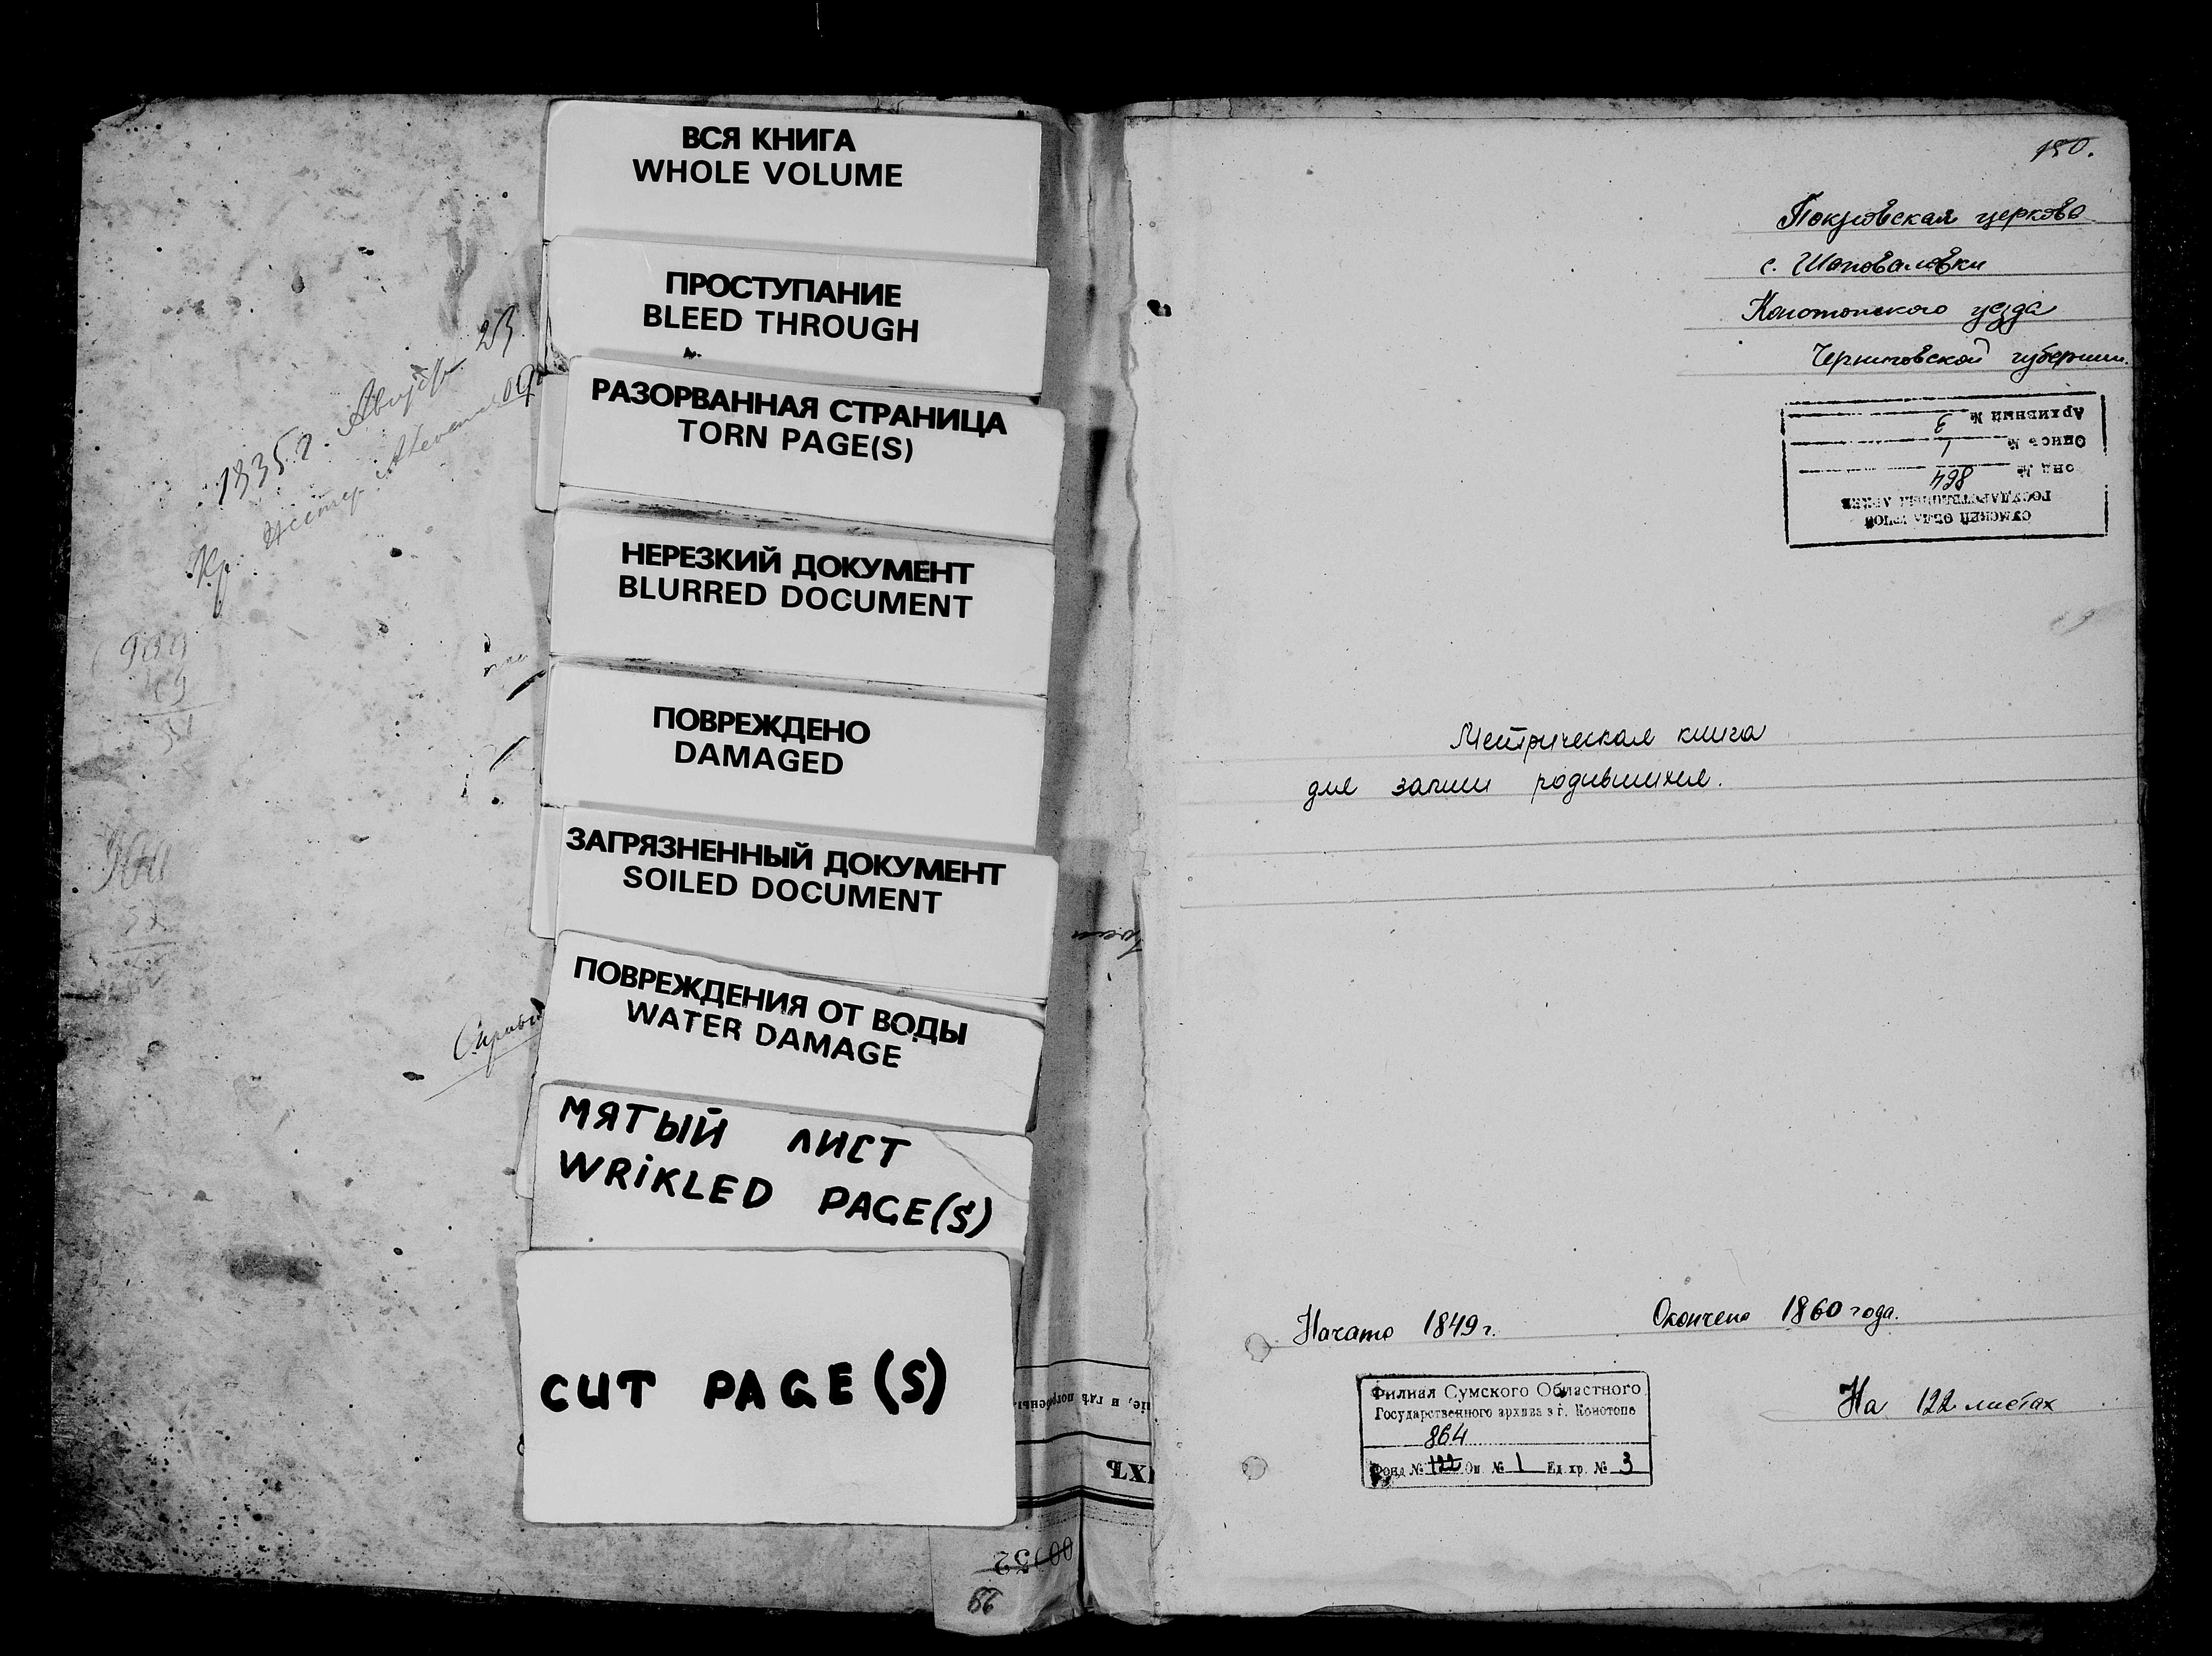 1835 г. Август 23
Кр.
ВСЯ КНИГА
WHOLE VOLUME
ПРОСТУПАНИЕ
BLEED THROUGH
РАЗОРВАННАЯ СТРАНИЦА
TORN PAGE(S)
НЕРЕЗКИЙ ДОКУМЕНТ
BLURRED DOCUMENT
ПОВРЕЖДЕНО
DAMAGED
ЗАГРЯЗНЕННЫЙ ДОКУМЕНТ
SOILED DOCUMENT
ПОВРЕЖДЕНИЯ ОТ ВОДЫ
WATER DAMAGE
МЯТЫЙ ЛИСТ
WRIKLED PAGE(S)
CUT PAGE(S)
66
150.
Покровская церковь
с. Шаповаловки
Конотопского уезда
Черниговской губернии.
СУМСКИЙ ОБЛАСТНОЙ
ГОСУДАРСТВЕННЫЙ АРХИВ
Фонд № 864
Опись № 1
Архивный № 3
Метрическая книга
для записи родившихся.
Начато 1849 г. Окончено 1860 года.
На 122 листах
Филиал Сумского Областного
Государственного архива в г. Конотопе
864
Фонд № 122 Оп. № 1 Ед. хр. № 3